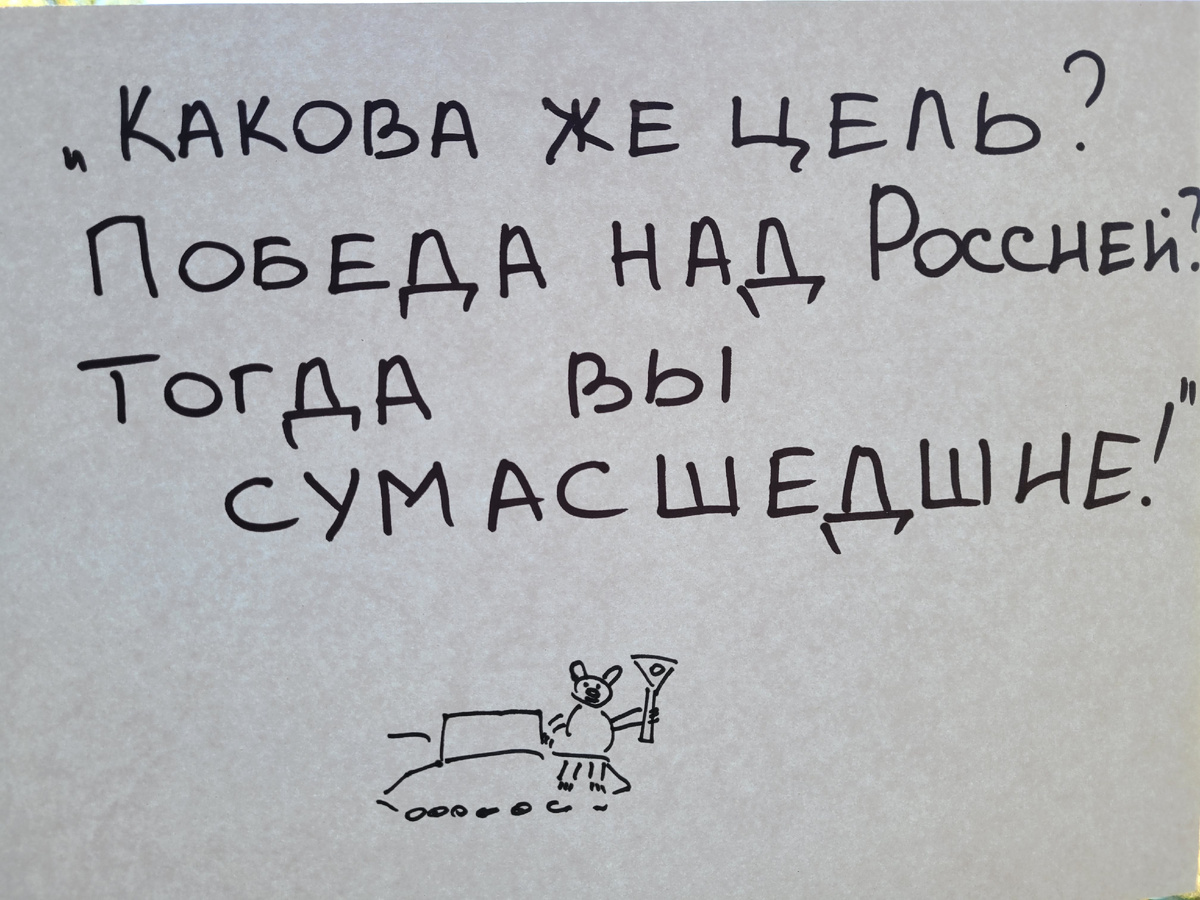 „КАКОВА ЖЕ ЦЕЛЬ?
ПОБЕДА НАД РОССИЕЙ?
ТОГДА ВЫ
СУМАСШЕДШИЕ!"